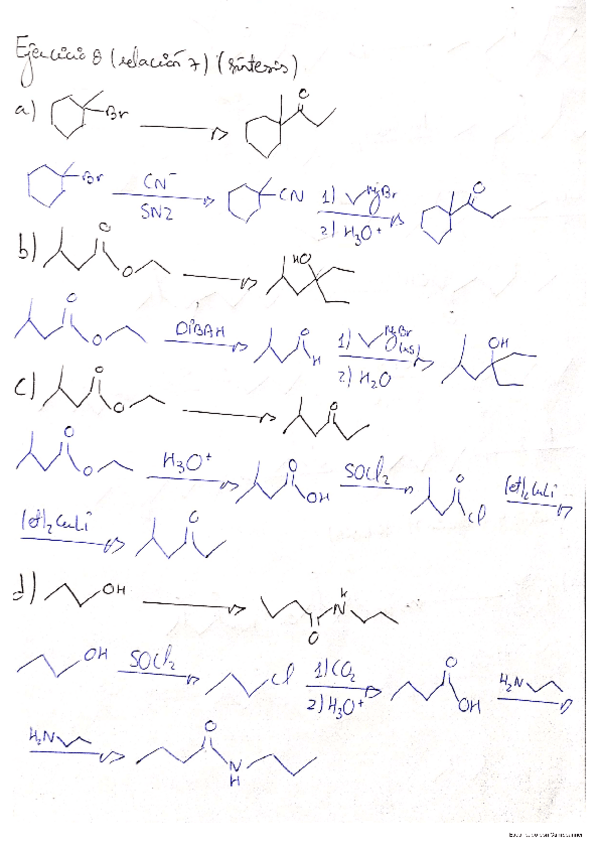 Ejercicio 8 (relación 7) (síntesis)
a) Br O
Br CN⁻ SN2 CN 1) MgBr 2) H₃O⁺ O
b) O O HO
O O DIBAH O H 1) MgBr (xs) 2) H₂O OH
c) O O O
O O H₃O⁺ O OH SOCl₂ O Cl (et)₂CuLi
(et)₂CuLi O
d) OH H N O
OH SOCl₂ Cl 1) CO₂ 2) H₃O⁺ O OH H₂N
H₂N O N H